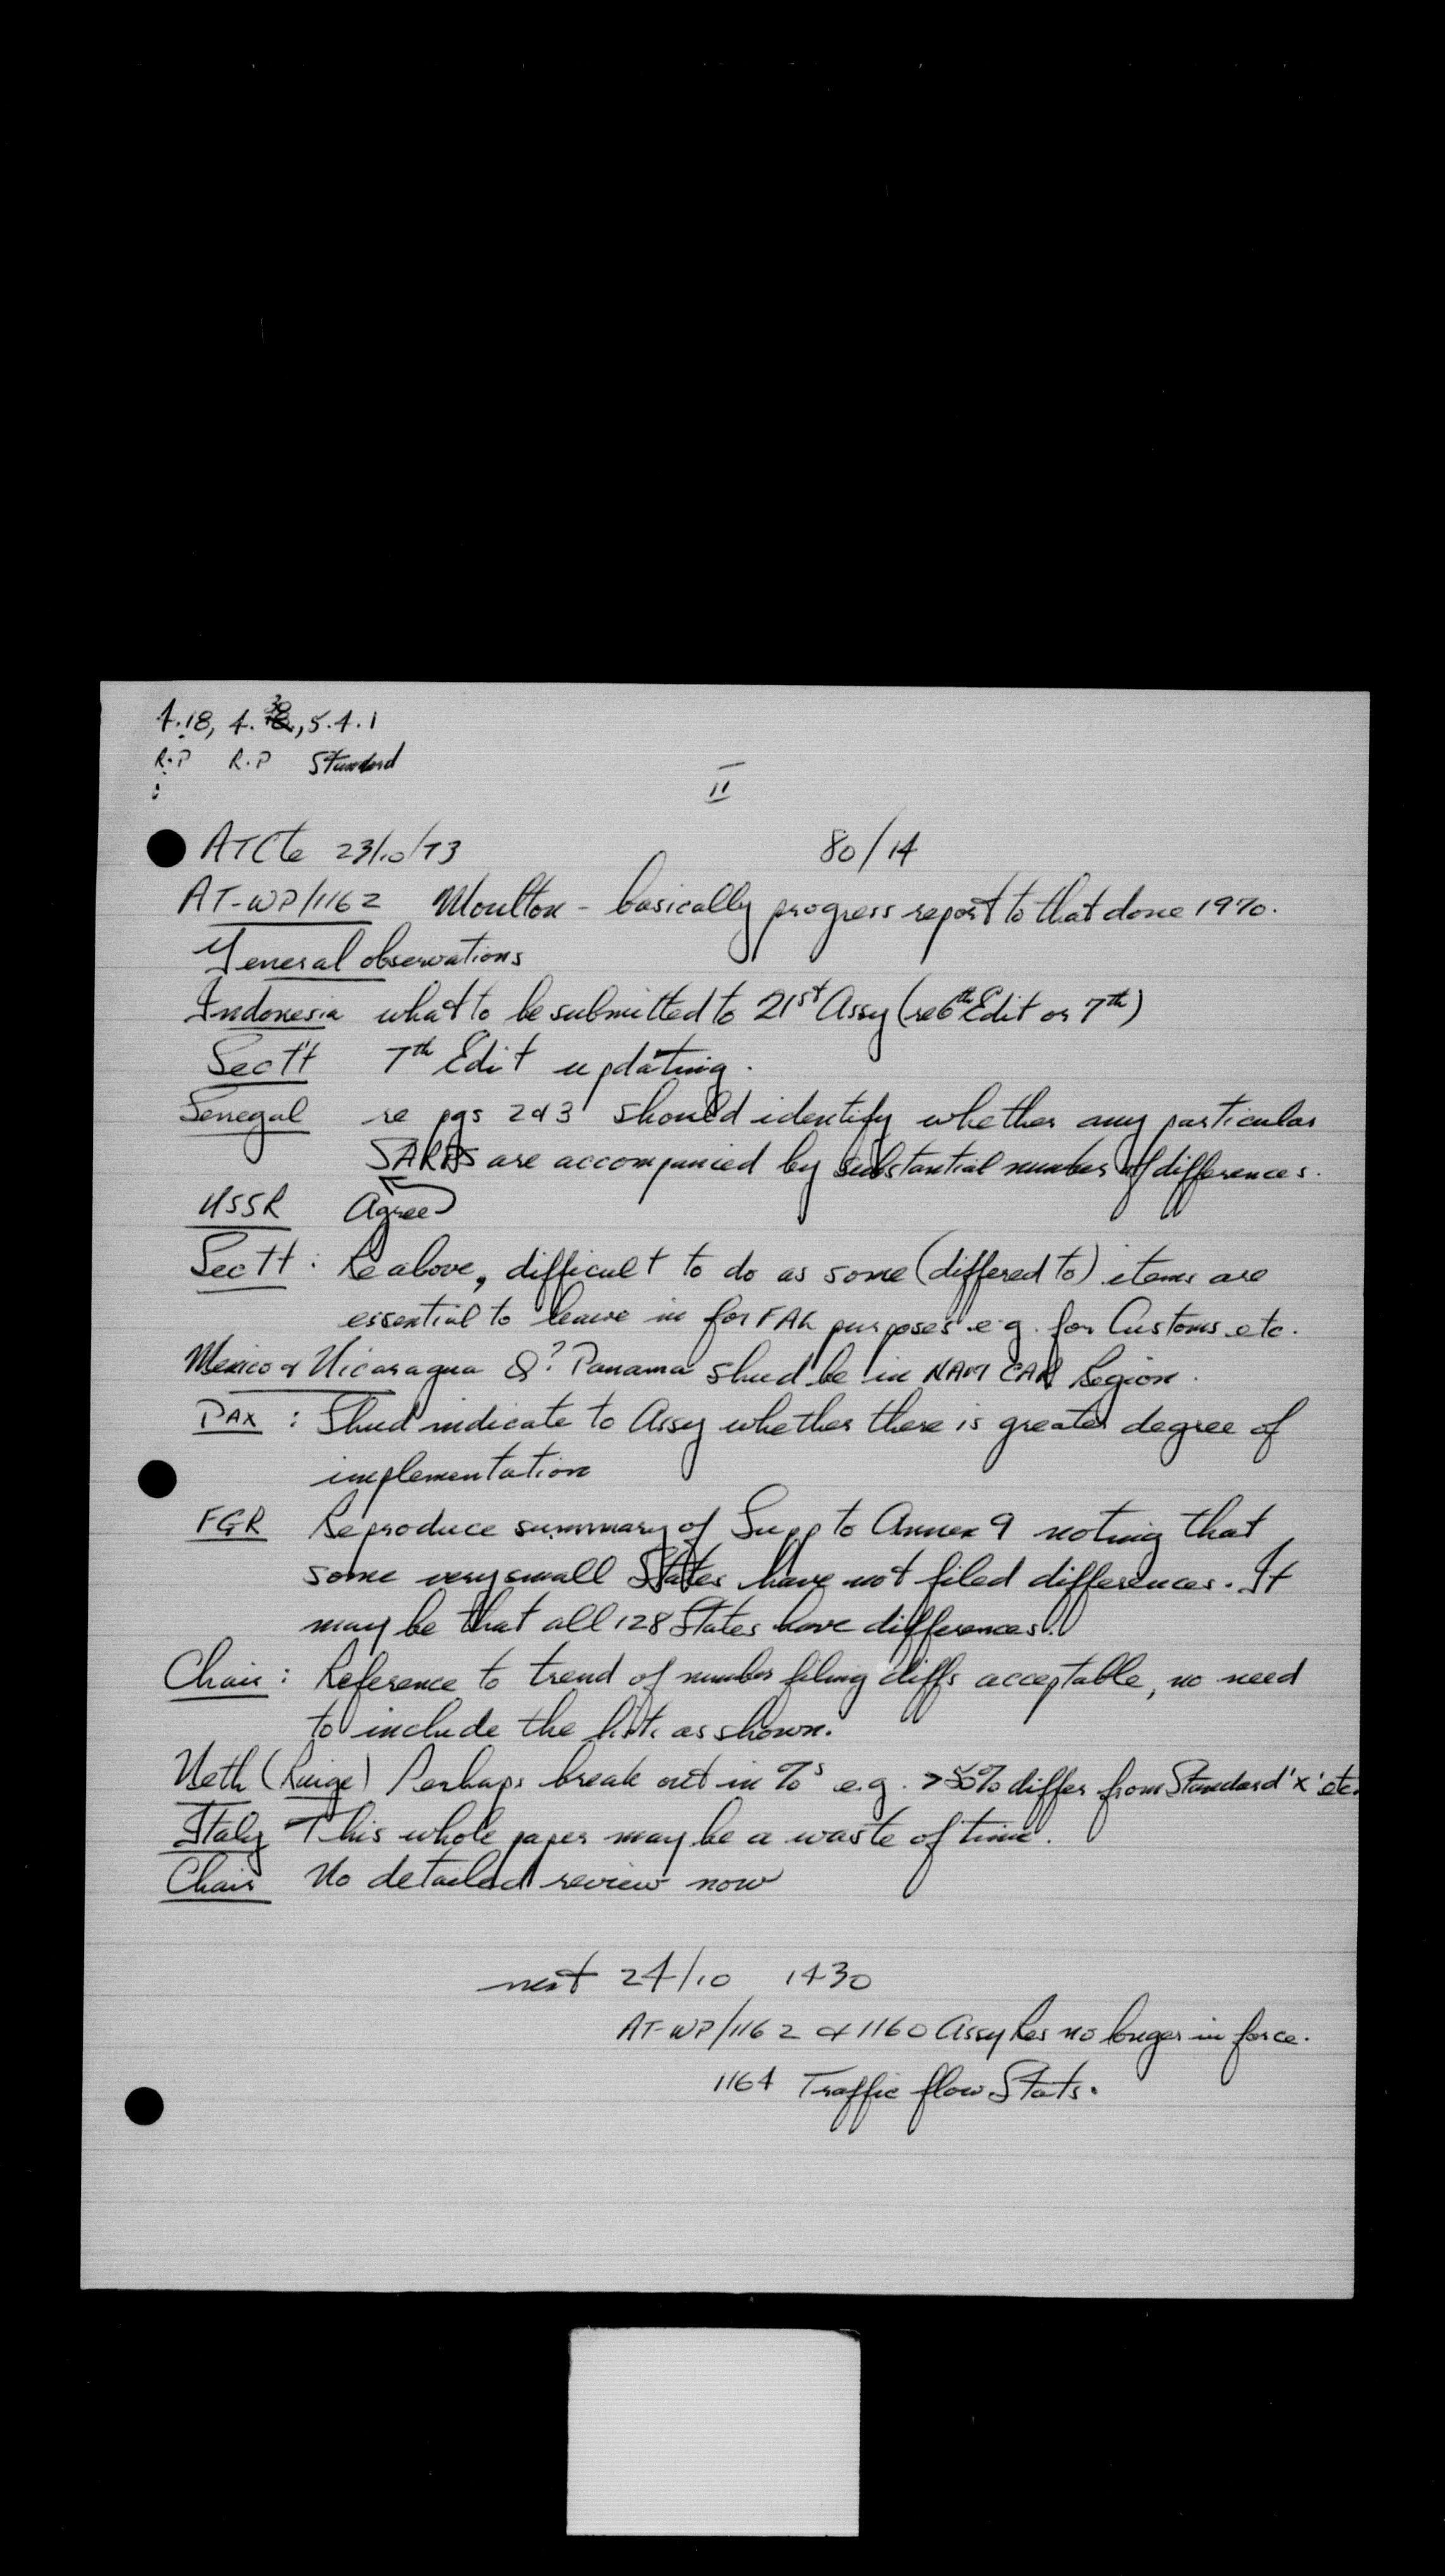 4.18, 4.38, 5.4.1
R.P R.P Standard
II
ATCte 23/10/73 80/14
AT-WP/1162 Moulton - basically progress report to that done 1970.
General observations
Indonesia what to be submitted to 21st Assy (re 6th Edit or 7th)
Sec't 7th Edit updating.
Senegal re pgs 2 & 3 should identify whether any particular
SARPS are accompanied by substantial number of differences.
USSR Agree
Sec't : Re above, difficult to do as some (differed to) items are
essential to leave in for FAL purposes e.g. for Customs etc.
Mexico & Nicaragua &? Panama shud be in NAM CAR Region.
PAX : Shud indicate to Assy whether there is greater degree of
implementation
FGR Reproduce summary of Supp to Annex 9 noting that
some very small States have not filed differences. It
may be that all 128 States have differences.
Chair : Reference to trend of number filing diffs acceptable, no need
to include the lists as shown.
Neth () Perhaps break out in %s e.g. >50% differ from Standard 'x' etc.
Italy This whole paper may be a waste of time.
Chair No detailed review now
next 24/10 1430
AT-WP/1162 & 1160 Assy Res no longer in force.
1164 Traffic flow Stats.